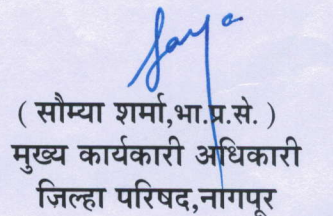 ( सौम्या शर्मा,भा.प्र.से. )
मुख्य कार्यकारी अधिकारी
जिल्हा परिषद,नागपूर